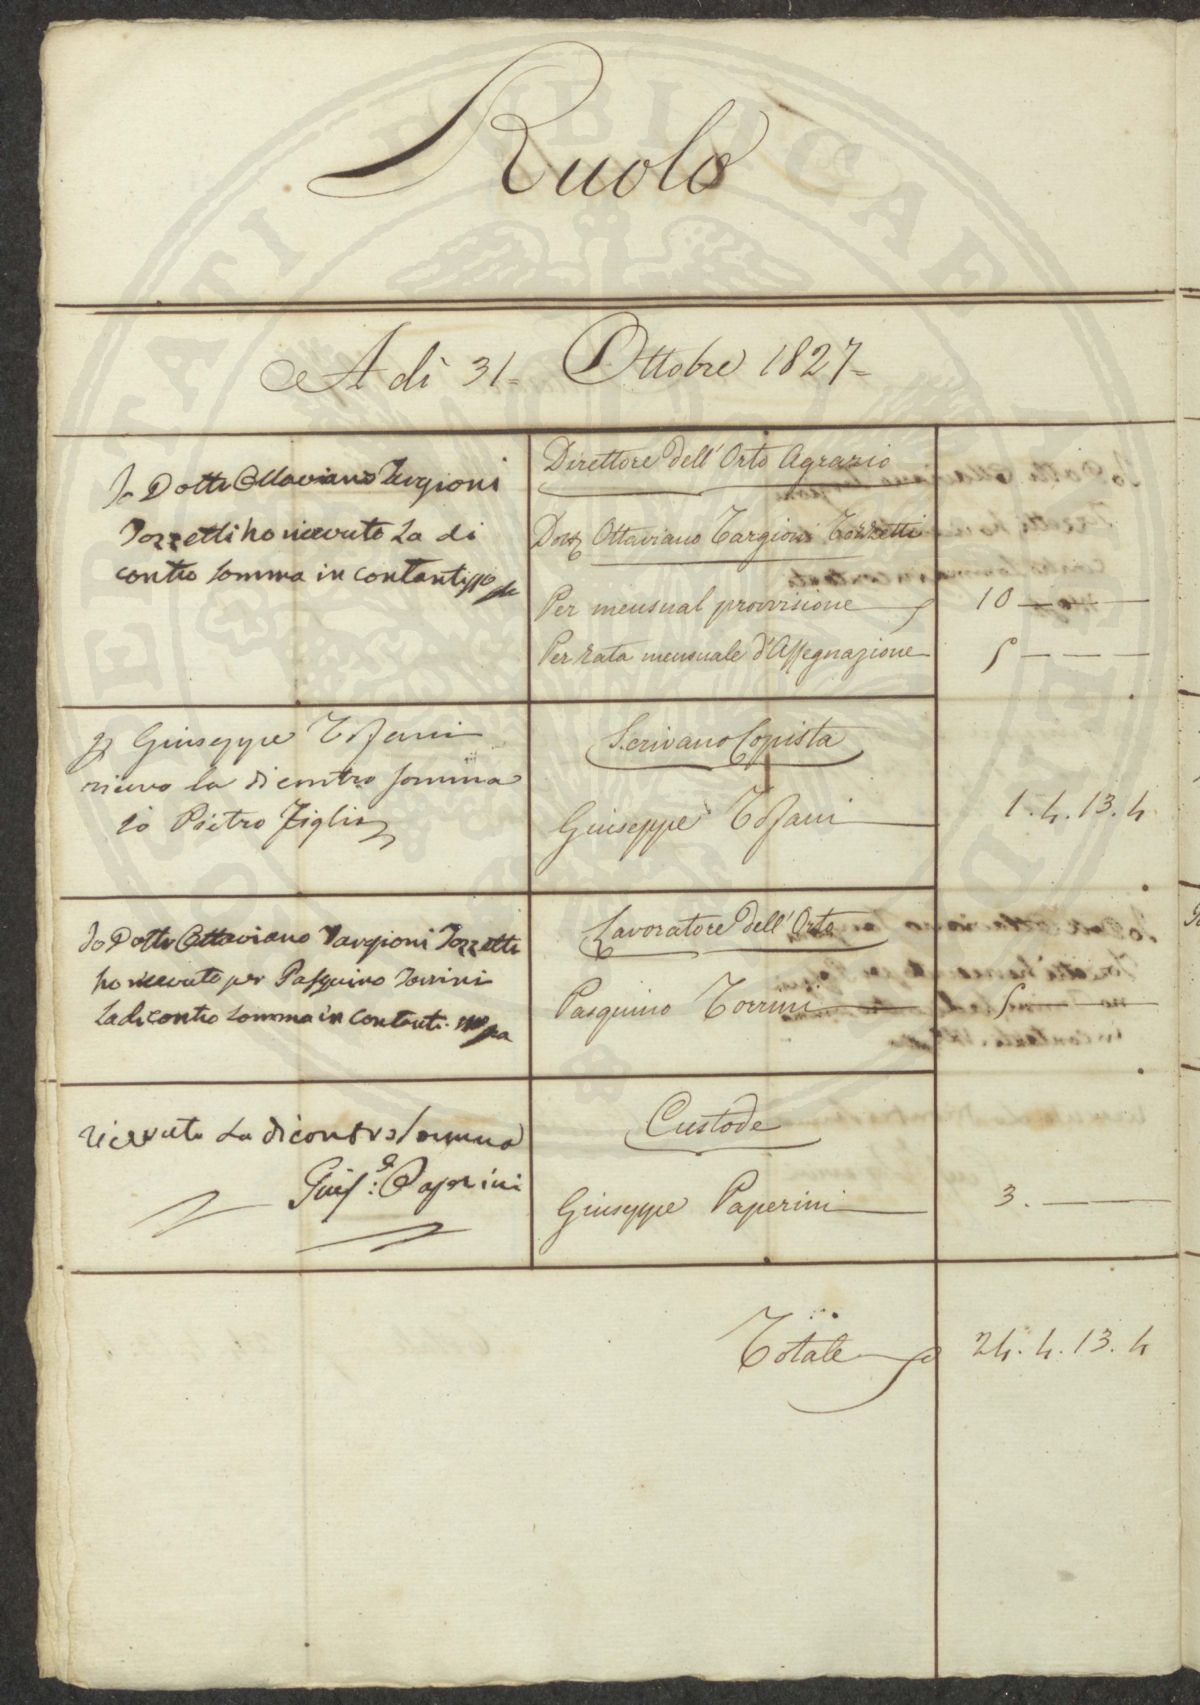 Ruolo
A dì 31= Ottobre 1827=
Io Dottr Ottaviano Targioni
Tozzetti ho ricevuto La di
contro Somma in contanti
Direttore dell' Orto Agrario
Dottr Ottaviano Targioni Tozzetti
Per mensual provvisione 10 — — —
Per rata mensuale d'Assegnazione 5 — — —
Giuseppe Tofani
ricevo la dicontro somma
io Pietro Figlio
Scrivano Copista
Giuseppe Tofani 1. 4. 13. 4
Io Dottr Ottaviano Targioni Tozzetti
ho ricevuto per Pasquino Torrini
La di contro Somma in Contanti
Lavoratore dell' Orto
Pasquino Torrini 5 — — —
ricevuto La dicontro somma
Giuse: Paperini
Custode
Giuseppe Paperini 3. — —
Totale 24. 4. 13. 4